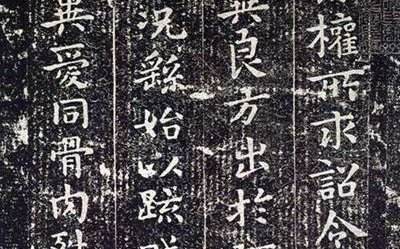 權所求詔令
冀良方出於
況繇始以疏
異愛同骨肉殊